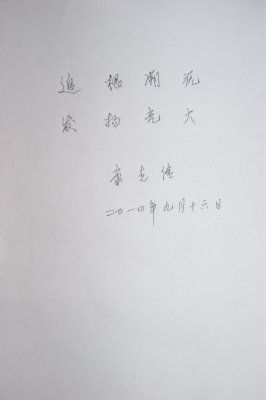 追根溯源
发扬光大
李克俭
二〇一〇年九月十六日